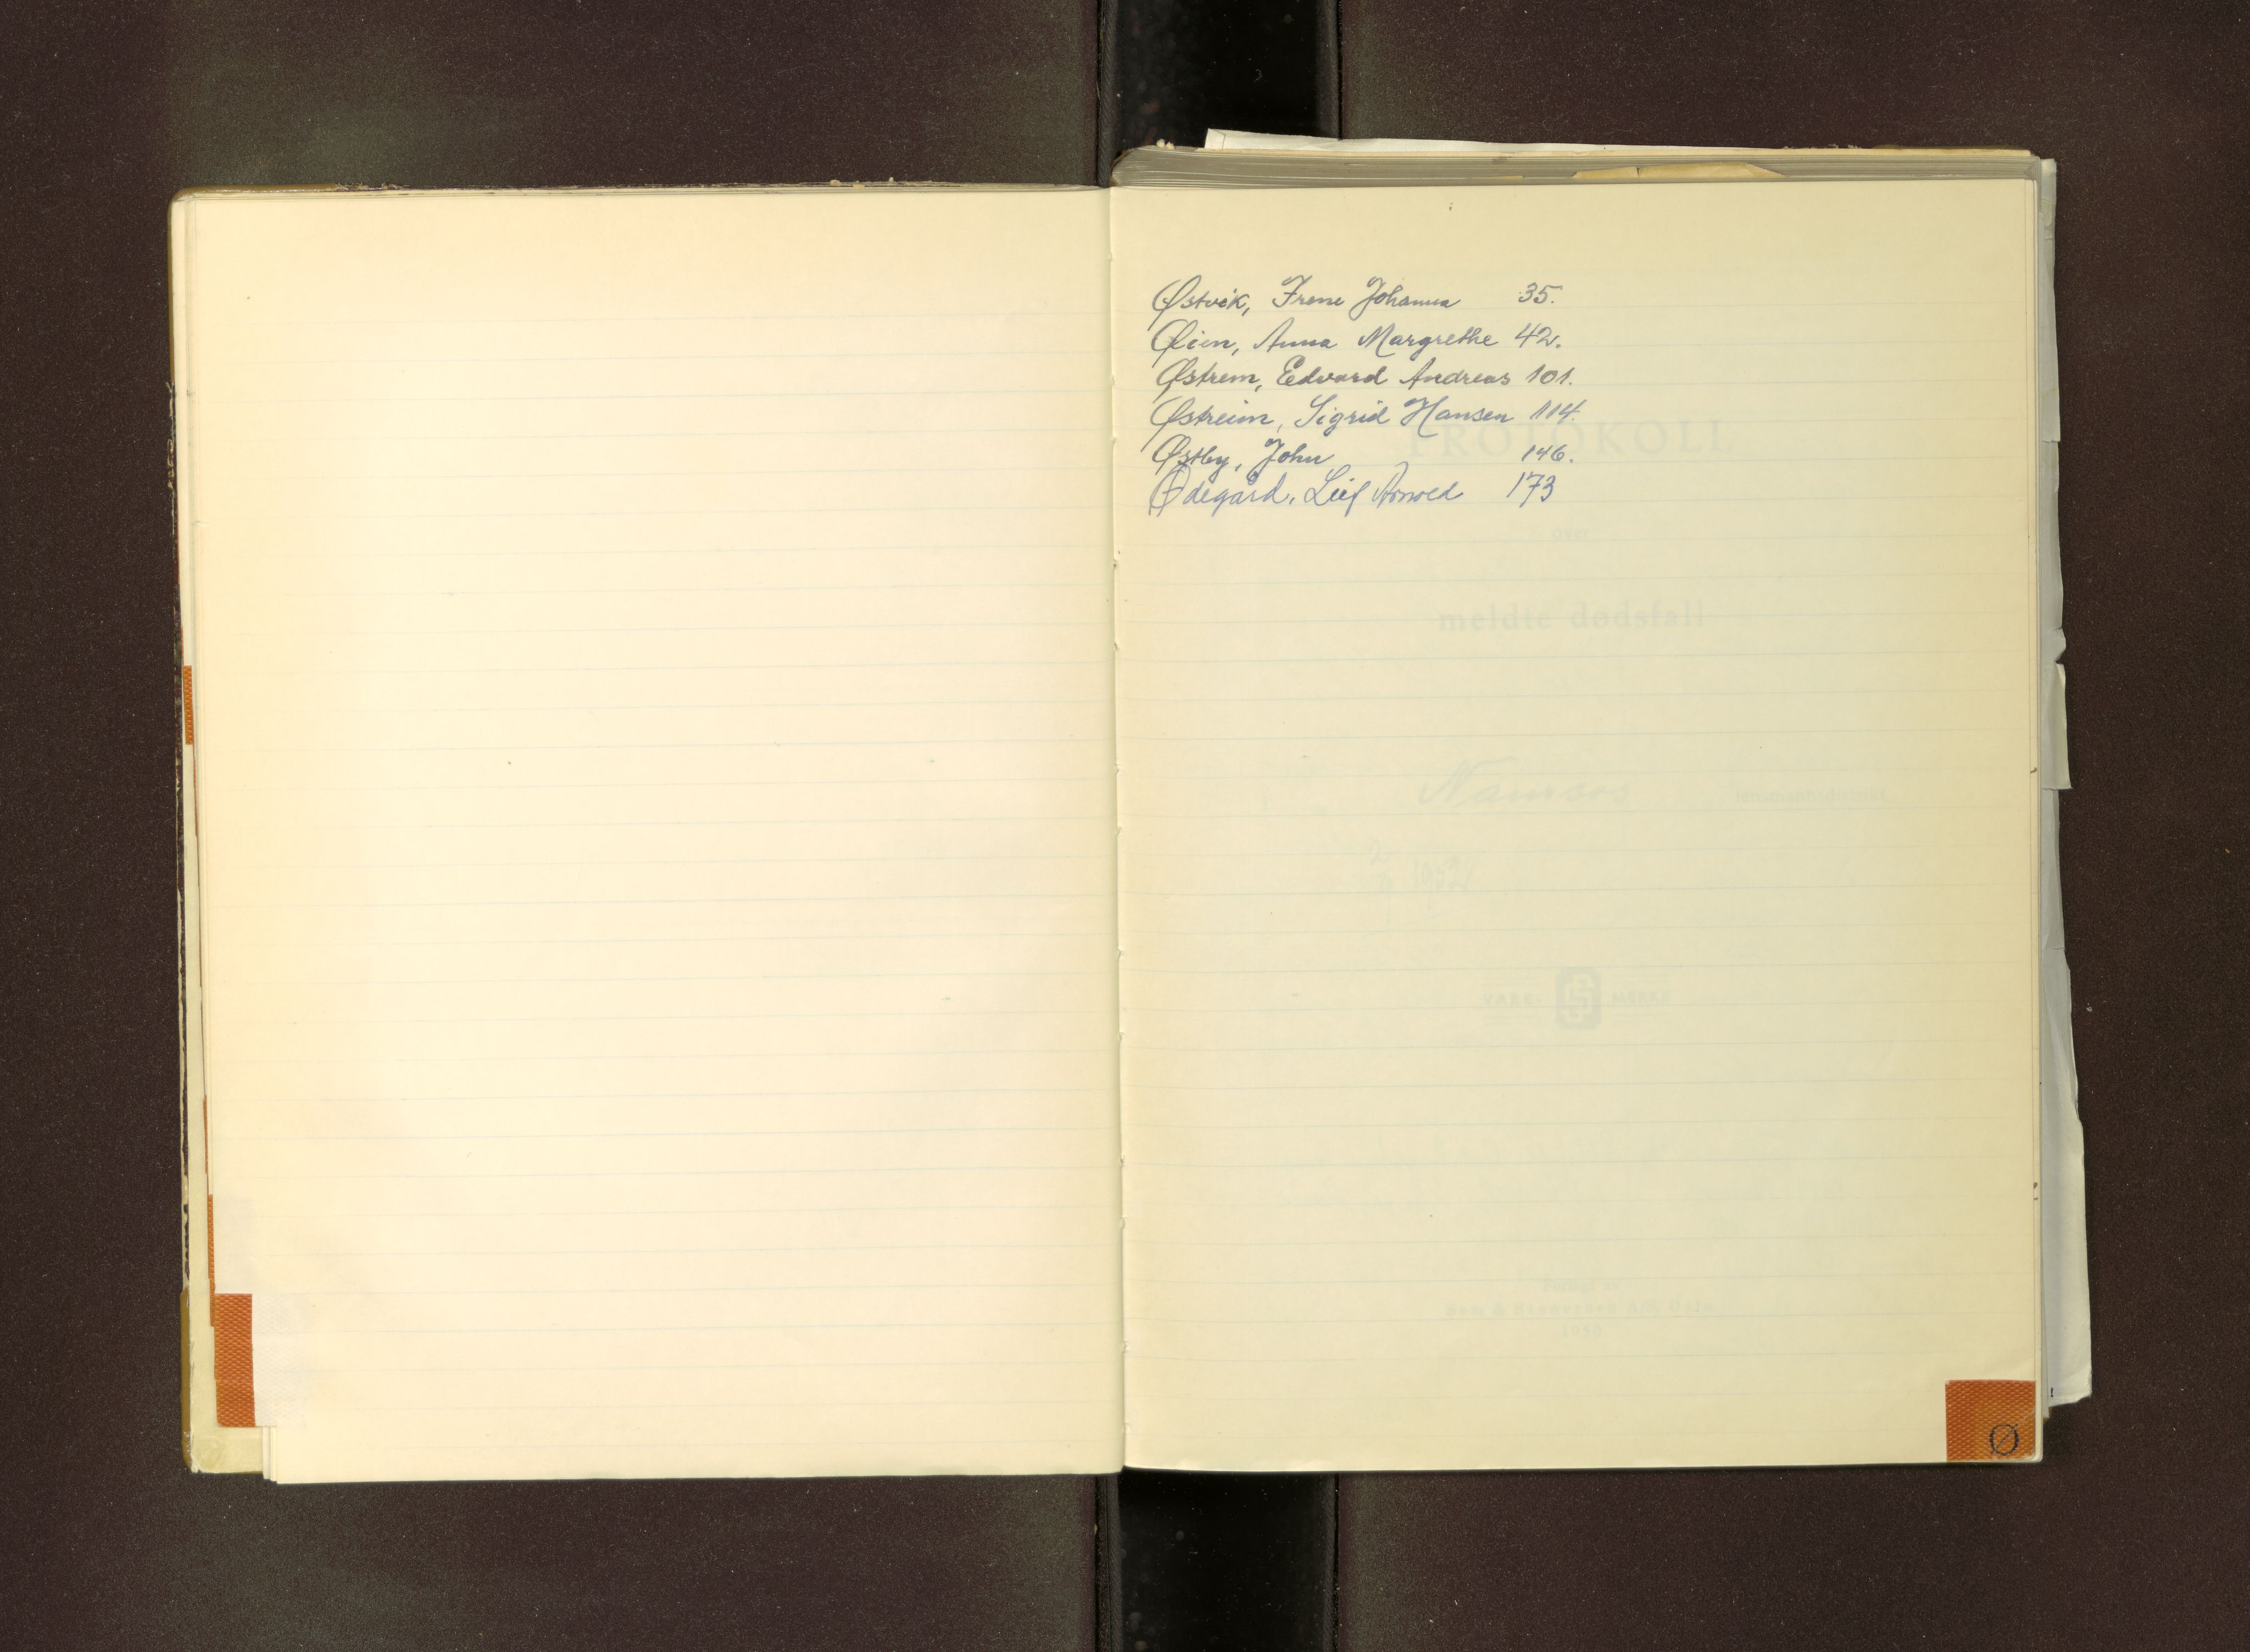 Østvik, Irene Johanna 35.
Øien, Anna Margrethe 42.
Østrem, Edvard Andreas 101.
Østreim, Sigrid Hansen 114.
Østby, John 146.
Ødegård, Leif Arnold 173
PROTOKOLL
over
meldte dødsfall
Namsos lensmannsdistrikt
VARE- MERKE
1950
Ø